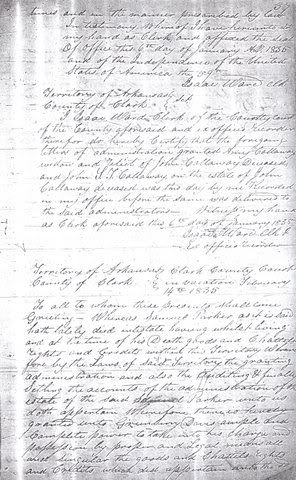 times and in the manner prescribed by Law
In testimony Whereof I have hereunto set
my hand as Clerk and affixed the seal
of office this 6th day of January AD. 1835
and of the Independence of the United
States of America the 59th
Isaac Ward Clk
Territory of Arkansas
County of Clark Sct
I Isaac Ward Clerk of the County Court
of the County aforesaid and ex officio recorder
therefor do hereby Certify that the foregoing
letters of administration granted Amy Callaway
widow and relict of John Callaway Deceased
and John S. T. Callaway on the estate of John
Callaway deceased was this day by me Recorded
in my office before the same was delivered to
the said administrators Witness my hand
as Clerk aforesaid this 6th day of January 1835
Isaac Ward Clk &
Ex officio recorder
Territory of Arkansas Clark County Court
County of Clark in vacation February
1835
To all to whom these Presents shall come
Greeting Whereas Samuel Parker as it is said
hath lately died intestate having whilst living
and at the time of his Death goods and Chattels
rights and Credits within this Territory
fore by the Laws of said Territory the granting
administration and also the auditing & finally
settling the accounts of the administration of the
estate of the said Parker unto us
doth appertain Wherefore there is hereby
granted unto Davis ample and
Complete power to take into his charge and
possession by proper and legal means all
and singular the goods and Chattels rights
and Credits which did appertain unto the